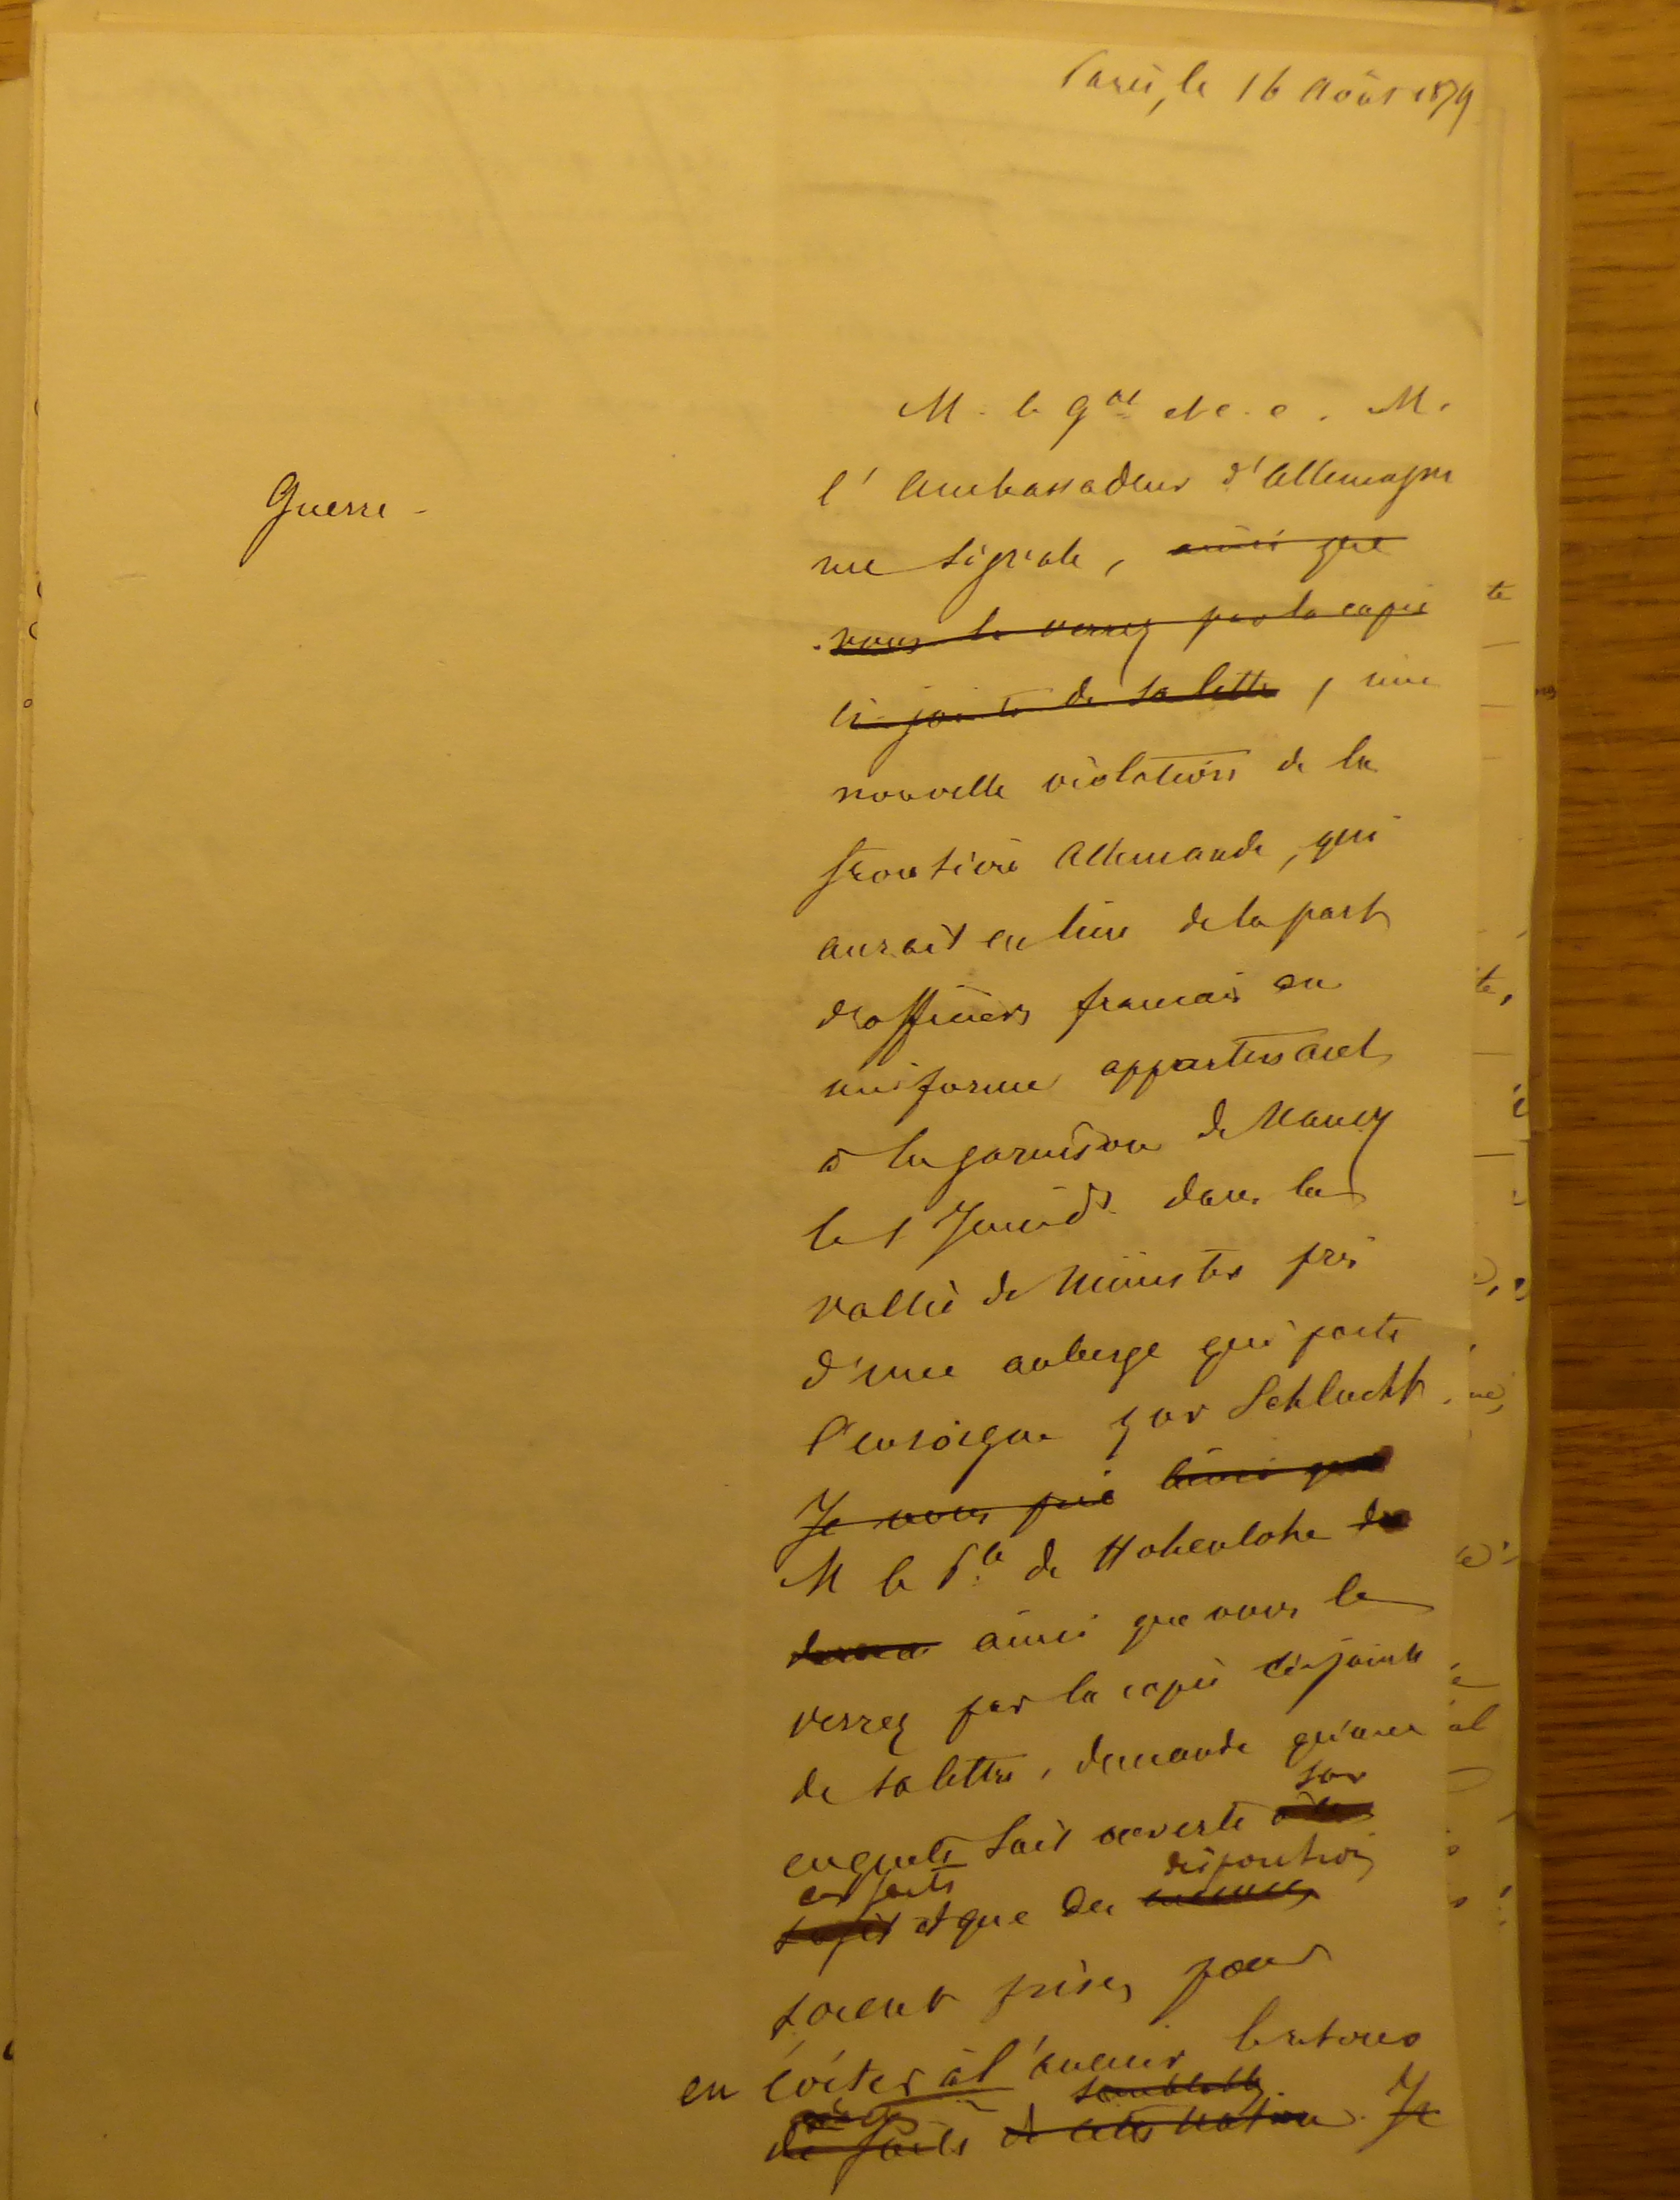 Paris, le 16 Août 1879
Guerre -
M. le Gal et c. e. M.
l'Ambassadeur d'Allemagne
me signale, ainsi que
vous le verrez par la copie
ci-jointe de sa lettre, une
nouvelle violation de la
frontière Allemande, qui
aurait eu lieu de la part
d'officiers français en
uniforme appartenant
à la garnison de Nancy
le 1 Juin dr dans la
vallée de Münster près
d'une auberge qui porte
l'enseigne zur Schlucht.
Je vous prie ainsi que
M le Pce de Hohenlohe de
ainsi que vous le
verrez par la copie ci-jointe
de sa lettre, demande qu'une
sur
enquête soit ouverte
disposition
ces faits
sujet et que des mesures
soient prises pour
en éviter à l'avenir le retour
semblables
de faits de cette nature. Je